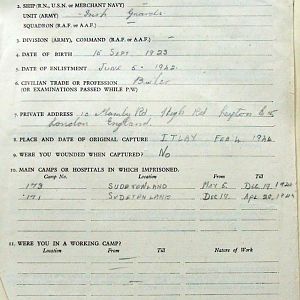 2. SHIP (R.N., U.S.N. OR MERCHANT NAVY)
UNIT (ARMY) Irish Guards
SQUADRON (R.A.F. or A.A.F.)
3. DIVISION (ARMY), COMMAND (R.A.F. or A.A.F.)
4. DATE OF BIRTH 15 SEPT 1923
5. DATE OF ENLISTMENT JUNE 5 - 1942
6. CIVILIAN TRADE OR PROFESSION
(OR EXAMINATIONS PASSED WHILE P/W)
7. PRIVATE ADDRESS Rd High Rd Leyton E
London England.
8. PLACE AND DATE OF ORIGINAL CAPTURE ITLAY FEB 4 1944
9. WERE YOU WOUNDED WHEN CAPTURED? No
10. MAIN CAMPS OR HOSPITALS IN WHICH IMPRISONED.
Camp No. Location From Till
173 SUDETONLAND MAY 5 DEC 17
171 SUDETANLAND DEC 17 APL
11. WERE YOU IN A WORKING CAMP?
Location From Till Nature of Work